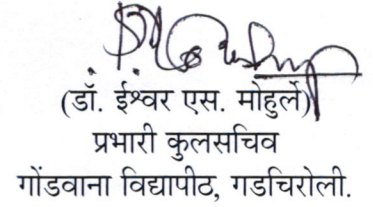 (डॉ. ईश्वर एस. मोहुर्ले)
प्रभारी कुलसचिव
गोंडवाना विद्यापीठ, गडचिरोली.